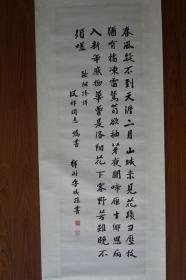 春風疑不到天涯二月山城未見花殘雪壓枝
猶有橘凍雷驚筍欲抽芽夜聞啼雁生鄉思病
入新年感物華曾是洛陽花下客野芳雖晚不
須嗟
同志
書